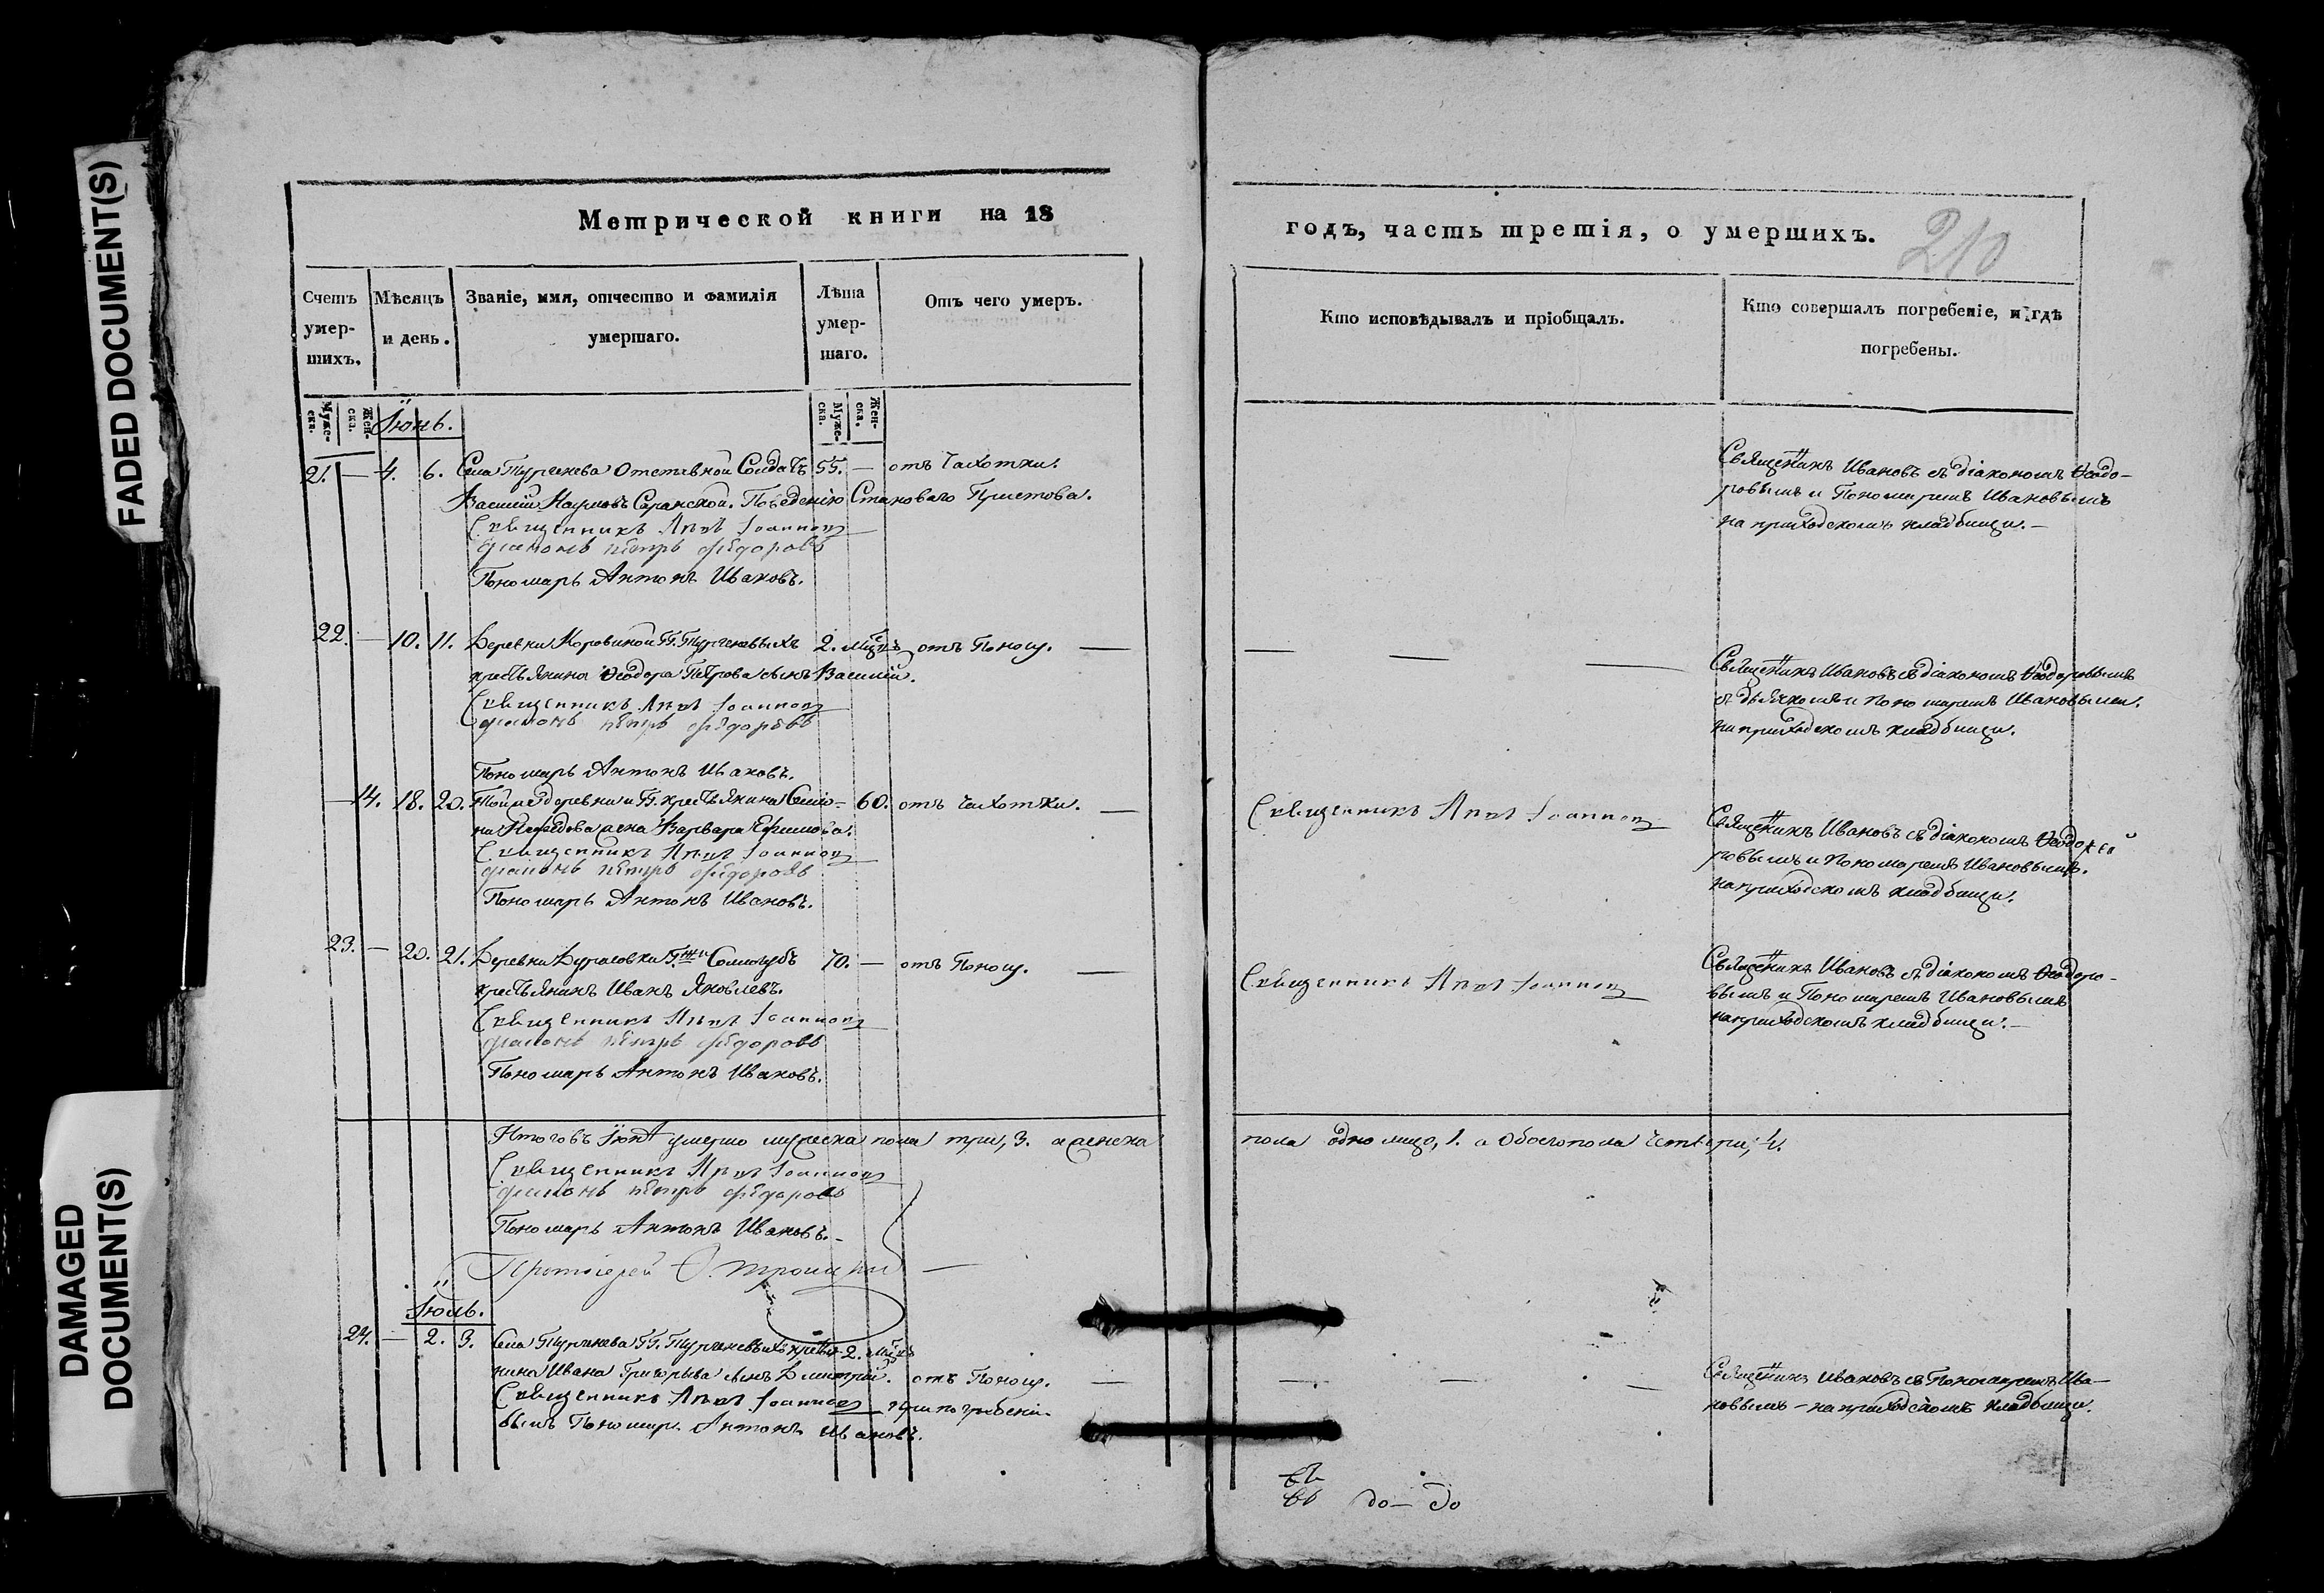 FADED DOCUMENT(S)
DAMAGED
DOCUMENT(S)
Метрической книги на 18
Счетъ
умер-
шихъ.
Мѣсяцъ
и день.
Званіе, имя, отчество и фамилія
умершаго.
Лѣта
умер-
шаго.
Отъ чего умеръ.
Муже-
ска.
Жен-
ска.
Муже-
ска.
Жен-
ска.
Іюнь.
21. — 4. 6. Села Тургенева Отставной Солдатъ 55. — отъ Чахотки.
Василій Наумовъ Саранской. По веденію Становаго Пристова.
Священникъ Іоанновъ
Діаконъ Петръ Федоровъ
Пономарь Антонъ Ивановъ.
22. — 10. 11. Деревни Коровиной Гг. Тургеневыхъ 2. мцъ отъ Поносу. —
крестьянина Ѳеодора Петрова сынъ Василій.
Священникъ Іоанновъ
Діаконъ Петръ Федоровъ
Пономарь Антонъ Ивановъ.
— 14. 18. 20. Тойже деревни и Гг. крестьянина Семіо- — 60. отъ Чахотки. —
на Нефедова жена Варвара Ефимова.
Священникъ Іоанновъ
Діаконъ Петръ Федоровъ
Пономарь Антонъ Ивановъ.
23. — 20. 21. Деревни Дурасовки Гжи Сологубъ 70. — отъ Поносу. —
крестьянинъ Иванъ Яковлевъ.
Священникъ Іоанновъ
Діаконъ Петръ Федоровъ
Пономарь Антонъ Ивановъ.
Итого въ Іюнѣ умерло мужеска пола три, 3. а женска
Священникъ Іоанновъ
Діаконъ Петръ Федоровъ
Пономарь Антонъ Ивановъ.
Протоіерей
Іюль.
24. — 2. 3. Села Тургенева Гг. Тургеневыхъ кресть- 2. мцъ
нина Ивана Григорьева сынъ Димитрій. отъ Поносу. —
Священникъ Іоанновъ при погребеніи
былъ Пономарь Антонъ Ивановъ.
годъ, часть третія, о умершихъ.
210
Кто исповѣдывалъ и пріобщалъ.
Кто совершалъ погребеніе, и гдѣ
погребены.
Священникъ Ивановъ съ діакономъ Ѳеодо-
ровымъ и Пономаремъ Ивановымъ
на приходскомъ кладбищи. —
— — —
Священникъ Ивановъ съ діакономъ Ѳеодоровымъ
съ дьячкомъ и пономаремъ Ивановыми.
на приходскомъ кладбищи.
Священникъ Іоанновъ
Священникъ Ивановъ съ діакономъ Ѳеодо
ровымъ и Пономаремъ Ивановымъ.
на приходскомъ кладбищи.
Священникъ Іоанновъ
Священникъ Ивановъ съ діакономъ Ѳеодоро-
вымъ и Пономаремъ Ивановымъ
на приходскомъ кладбищи. —
пола одно лицо, 1. а Обоего пола Четыри, 4.
— — —
Священникъ Ивановъ съ Пономаремъ Ива-
новымъ — на приходскомъ кладбищи.
до — До